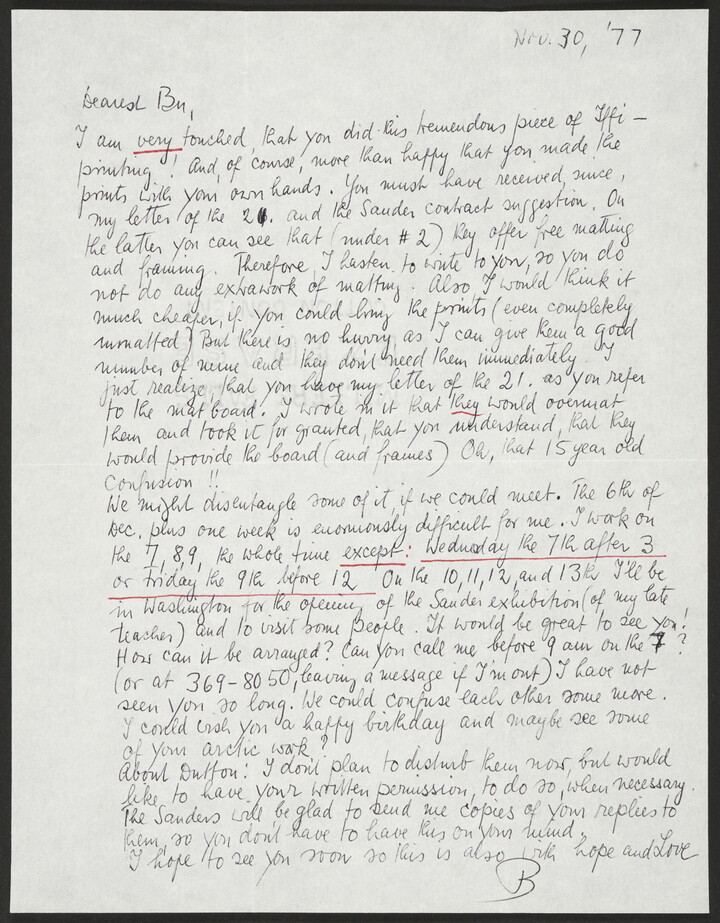 Nov. 30, '77
Dearest Bu,
I am very touched, that you did this tremendous piece of Iffi-
printing! And, of course, more than happy that you made the
prints with your own hands. You must have received, since,
my letter of the 21. and the Sander contract suggestion. On
the latter you can see that (under #2) they offer free matting
and framing. Therefore, I hasten to write to you, so you do
not do any extrawork of matting. Also, I would think it
much cheaper, if you could bring the prints (even completely
unmatted) But there is no hurry, as I can give them a good
number of mine and they don't need them immediately. I
just realize that you have my letter of the 21. as you refer
to the mat board. I wrote in it that they would overmat
them and took it for granted, that you understand, that they
would provide the board (and frames) Oh, that 15 year old
confusion!!
We might disentangle some of it, if we could meet. The 6th of
Dec. plus one week is enormously difficult for me. I work on
the 7, 8, 9, the whole time except: Wednesday the 7th after 3
or Friday the 9th before 12 On the 10, 11, 12, and 13th I'll be
in Washington for the opening of the Sander exhibition (of my late
teacher) and to visit some people. It would be great to see you!
How can it be arranged? Can you call me before 9 am on the 7?
(or at 369-8050, leaving a message if I'm out) I have not
seen you so long. We could confuse each other some more.
I could wish you a happy birthday and maybe see some
of your arctic work?
About Dutton: I don't plan to disturb them now, but would
like to have your written permission, to do so, when necessary.
The Sanders will be glad to send me copies of your replies to
them, so you don't have to have this on your mind.
I hope to see you soon so this is also with hope and Love
B